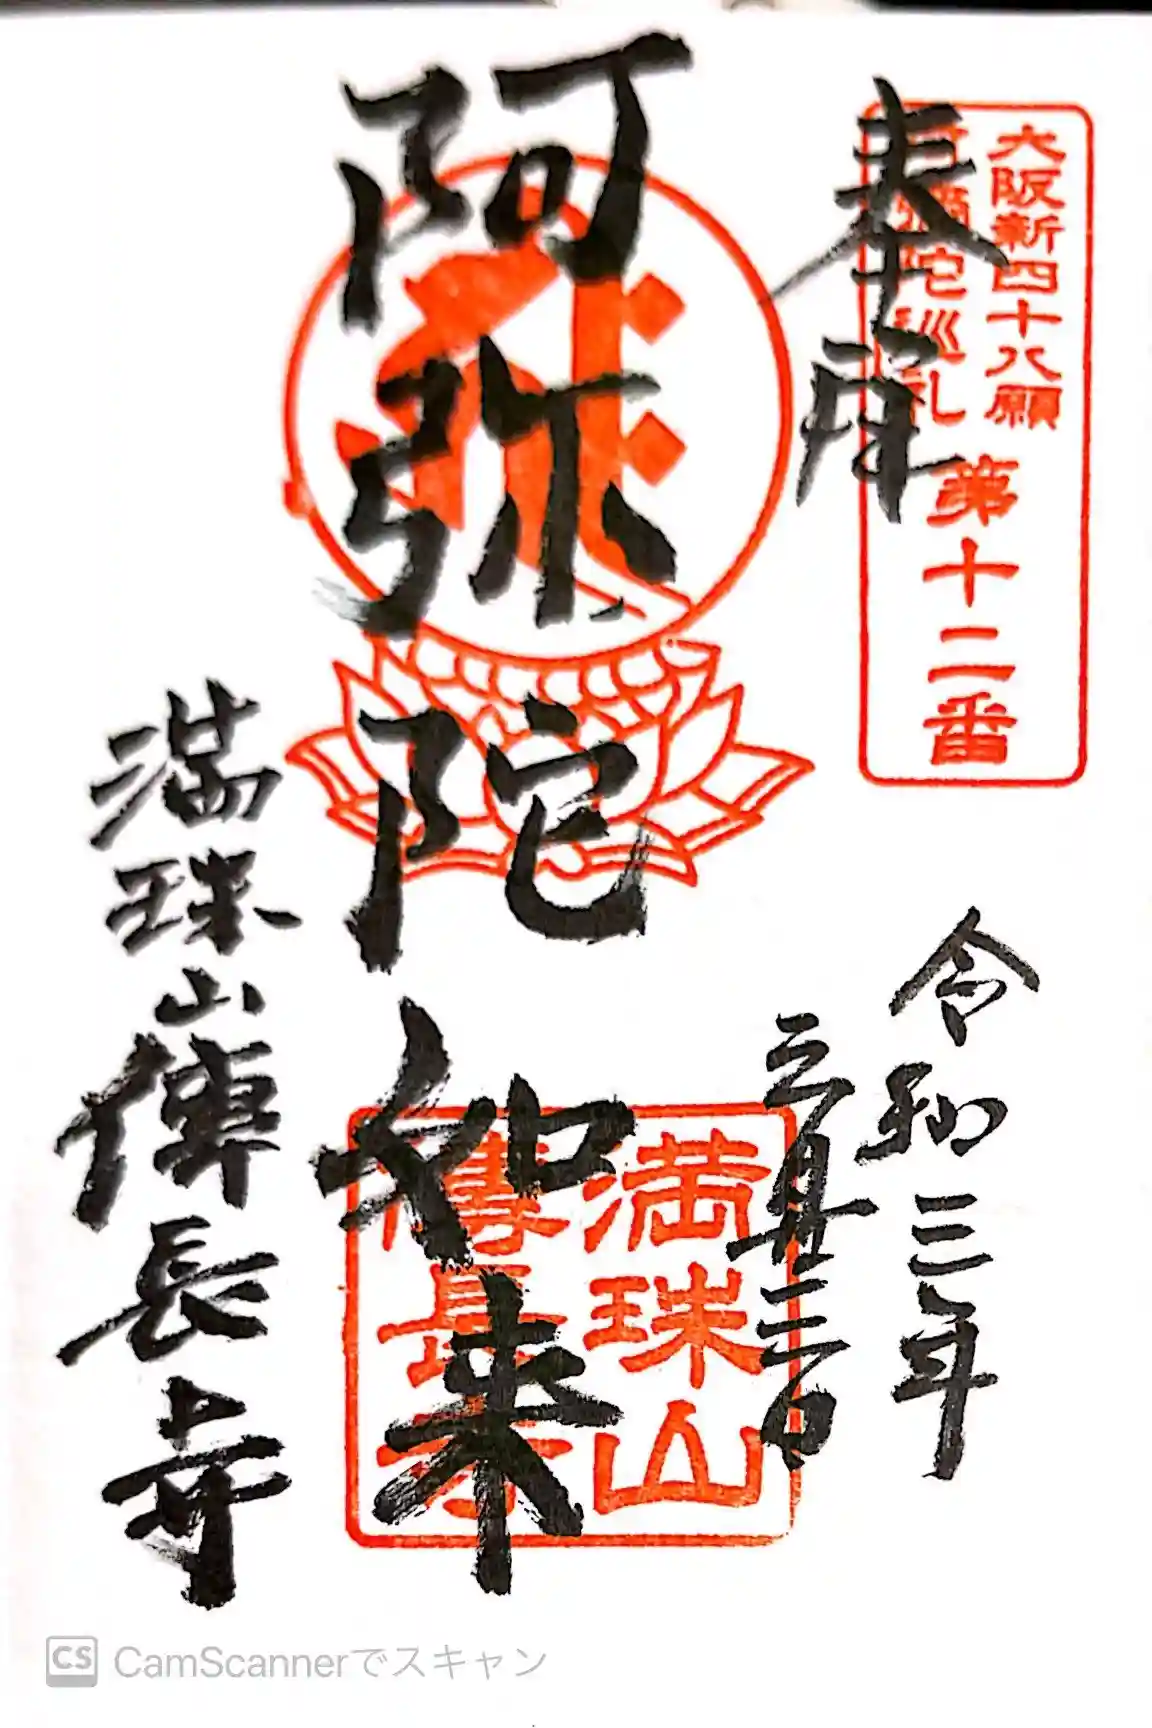 大阪新四十八願
阿彌陀巡礼
第十二番
奉拝
令和三年
五月三日
阿弥陀如来
満珠山
傳長寺
満珠山傳長寺
CS CamScannerでスキャン